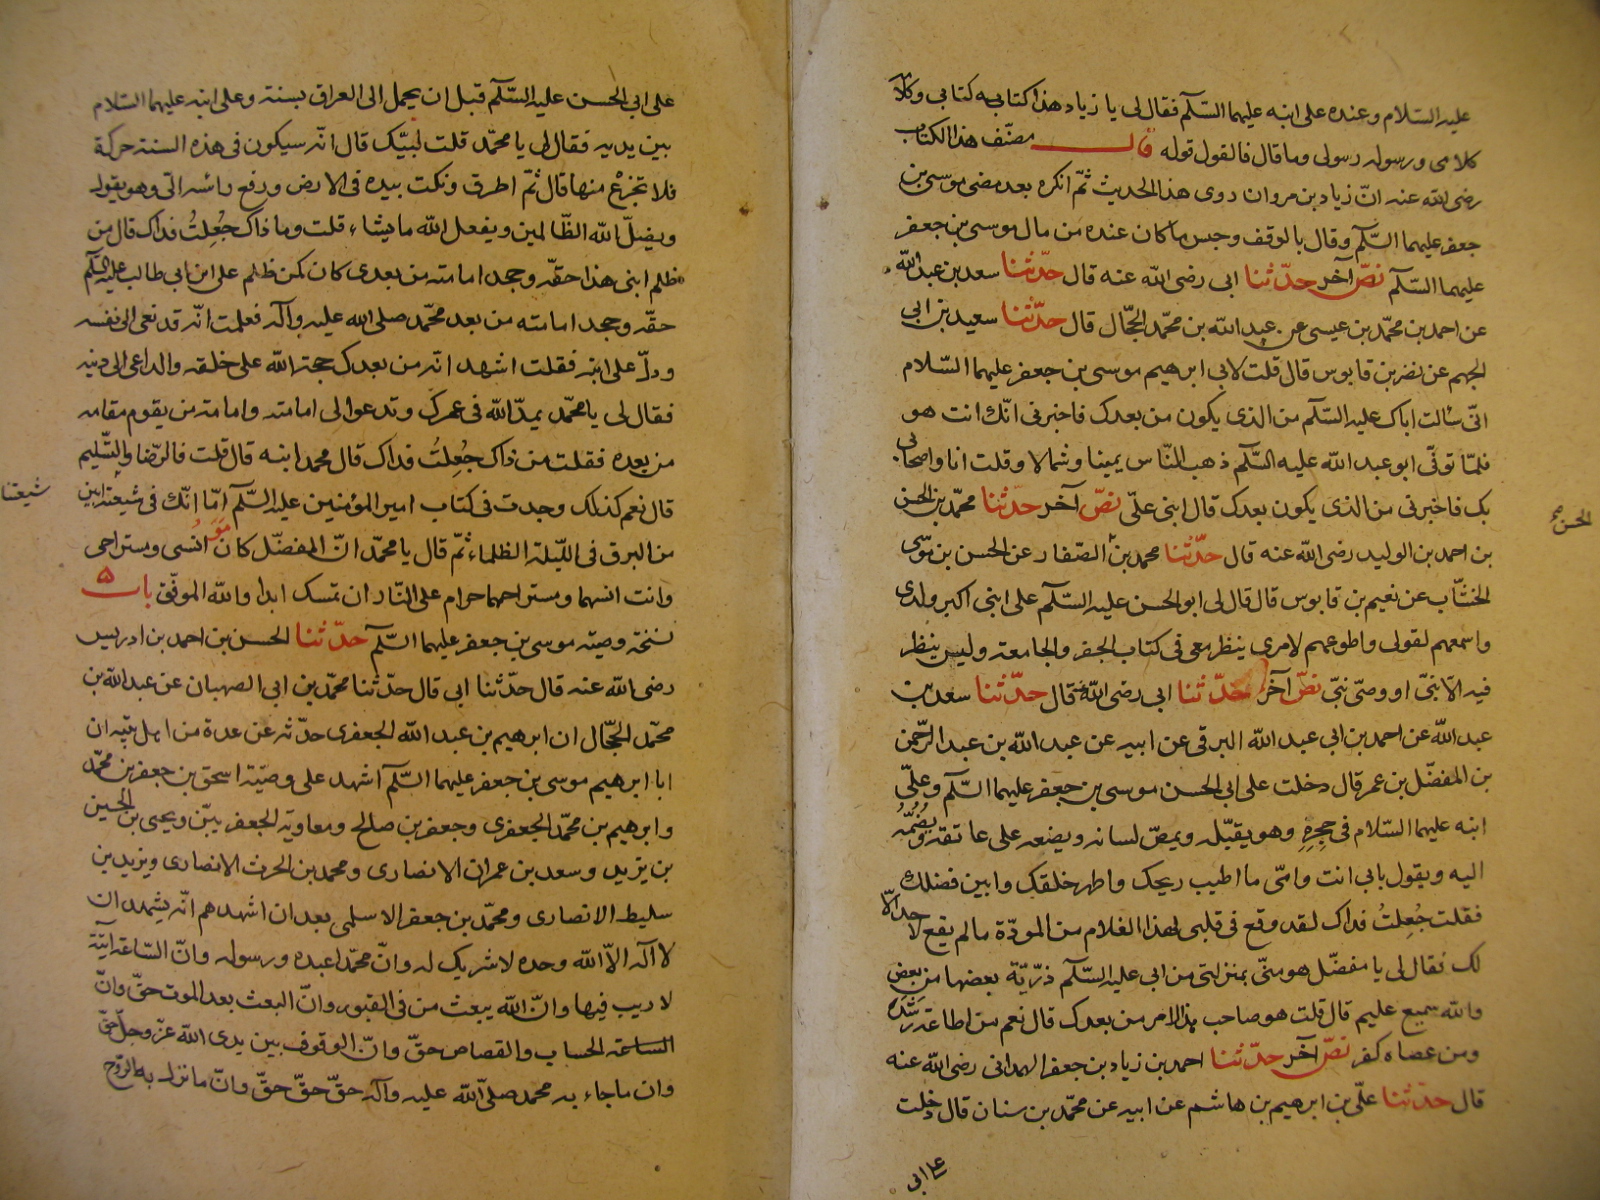 عليه السلام وعنده على ابنه عليهما السّلم فقال لى يا زياد هذا كتابه كتابى وكلامه
كلامى ورسوله رسولى وما قال فالقول قوله قال مصنّف هذا الكتاب
رضى الله عنه انّ زياد بن مروان روى هذا الحديث ثمّ انكره بعد مضى موسى بن
جعفر عليهما السّلم وقال بالوقف وحبس ما كان عنده من مال موسى بن جعفر
عليهما السّلم نصّ آخر حدّثنا ابى رضى الله عنه قال حدّثنا سعد بن عبد الله
عن احمد بن محمّد بن عيسى عن عبد الله بن محمّد الحجّال قال حدّثنا سعيد بن ابى
الجهم عن نصر بن قابوس قال قلت لابى ابرهيم موسى بن جعفر عليهما السّلام
انّى سألت اباك عليه السّلم من الذى يكون من بعدك فاخبرنى انّك انت هو
فلمّا توفّى ابو عبد الله عليه السّلم ذهب النّاس يمينا وشمالا وقلت انا واصحابى
بك فاخبرنى من الذى يكون بعدك قال ابنى علىّ نصّ آخر حدّثنا محمّد بن الحسن
الحسن صح
بن احمد بن الوليد رضى الله عنه قال حدّثنا محمد بن الصّفار عن الحسن بن موسى
الخشّاب عن نعيم بن قابوس قال قال لى ابو الحسن عليه السّلم على ابنى اكبر ولدى
واسمعهم لقولى واطوعهم لامرى ينظر معى فى كتاب الجفر والجامعة وليس ينظر
فيه الّا نبىّ او وصىّ نبىّ نصّ آخر حدّثنا ابى رضى الله عنه قال حدّثنا سعد بن
عبد الله عن احمد بن ابى عبد الله البرقى عن ابيه عن عبد الله بن عبد الرّحمن
بن المفضّل بن عمر قال دخلت على ابى الحسن موسى بن جعفر عليهما السّلم وعلىّ
ابنه عليهما السّلام فى حجره وهو يقبّله ويمصّ لسانه ويضعه على عاتقه ويضمّه
اليه ويقول بابى انت وامّى ما اطيب ريحك واطهر خلقك وابين فضلك
فقلت جُعِلتُ فداك لقد وقع فى قلبى لهذا الغلام من المودّة ما لم يقع لاحد الّا
لك فقال لى يا مفضّل هو منّى بمنزلتى من ابى عليه السّلم ذرّيّة بعضها من بعض
والله سميع عليم قال قلت هو صاحب هذا الامر من بعدك قال نعم من اطاعه رشد
ومن عصاه كفر نصّ آخر حدّثنا احمد بن زياد بن جعفر الهمدانى رضى الله عنه
قال حدّثنا علىّ بن ابرهيم بن هاشم عن ابيه عن محمّد بن سنان قال دخلت
على ابى
على ابى الحسن عليه السّلم قبل ان يحمل الى العراق بسنة وعلى ابنه عليهما السّلام
بين يديه فقال لى يا محمّد قلت لبّيك قال انّه سيكون فى هذه السنة حركة
فلا تجزع منها قال ثمّ اطرق ونكت بيده فى الارض ورفع راسه الىّ وهو يقول
ويضلّ الله الظّالمين ويفعل الله ما يشاء قلت وما ذاك جُعِلتُ فداك قال من
ظلم ابنى هذا حقّه وجحد امامته من بعدى كان كمن ظلم على ابن ابى طالب عليه السلم
حقّه وجحد امامته من بعد محمّد صلى الله عليه وآله فعلمت انّه قد نعى الى نفسه
ودلّ على ابنه فقلت اشهد انّه من بعدك حجة الله على خلقه والداعى الى دينه
فقال لى يا محمّد يمدّ الله فى عمرك وتدعو الى امامته وامامة من يقوم مقامه
من بعده فقلت من ذاك جُعِلتُ فداك قال محمد ابنه قال قلت فالرّضا والتّسليم
قال نعم كذلك وجدت فى كتاب امير المؤمنين عليه السّلم امّا انّك فى شيعته ابين
شيعتنا
من البرق فى اللّيلة الظلماء ثمّ قال يا محمّد انّ المفضّل كان انسى ومستراحى
وانت انسهما ومستراحهما حرام على النّار ان تمسك ابدا والله الموفّق باب ٥
نسخة وصيّة موسى بن جعفر عليهما السّلم حدّثنا الحسن بن احمد بن ادريس
رضى الله عنه قال حدّثنا ابى قال حدّثنا محمّد بن ابى الصهبان عن عبد الله بن
محمّد الحجّال ان ابرهيم بن عبد الله الجعفرى حدّثه عن عدة من اهل بيته ان
ابا ابرهيم موسى بن جعفر عليهما السّلم اشهد على وصيّته اسحق بن جعفر بن محمّد
وابرهيم بن محمّد الجعفرى وجعفر بن صالح ومعاوية الجعفريين ويحيى بن الحسين
بن يزيد وسعد بن عمران الانصارى ومحمد بن الحرث الانصارى ويزيد بن
سليط الانصارى ومحمّد بن جعفر الاسلمى بعد ان اشهدهم انّه يشهد ان
لا آله الّا الله وحده لا شريك له وانّ محمّدا عبده ورسوله وانّ السّاعة آتية
لا ريب فيها وانّ الله يبعث من فى القبور وانّ البعث بعد الموت حقّ وانّ
الساعة الحساب والقصاص حقّ وانّ الوقوف بين يدى الله عزّ وجلّ حقّ
وان ما جاء به محمد صلى الله عليه وآله حقّ حقّ حقّ وانّ ما نزل به الرّوح